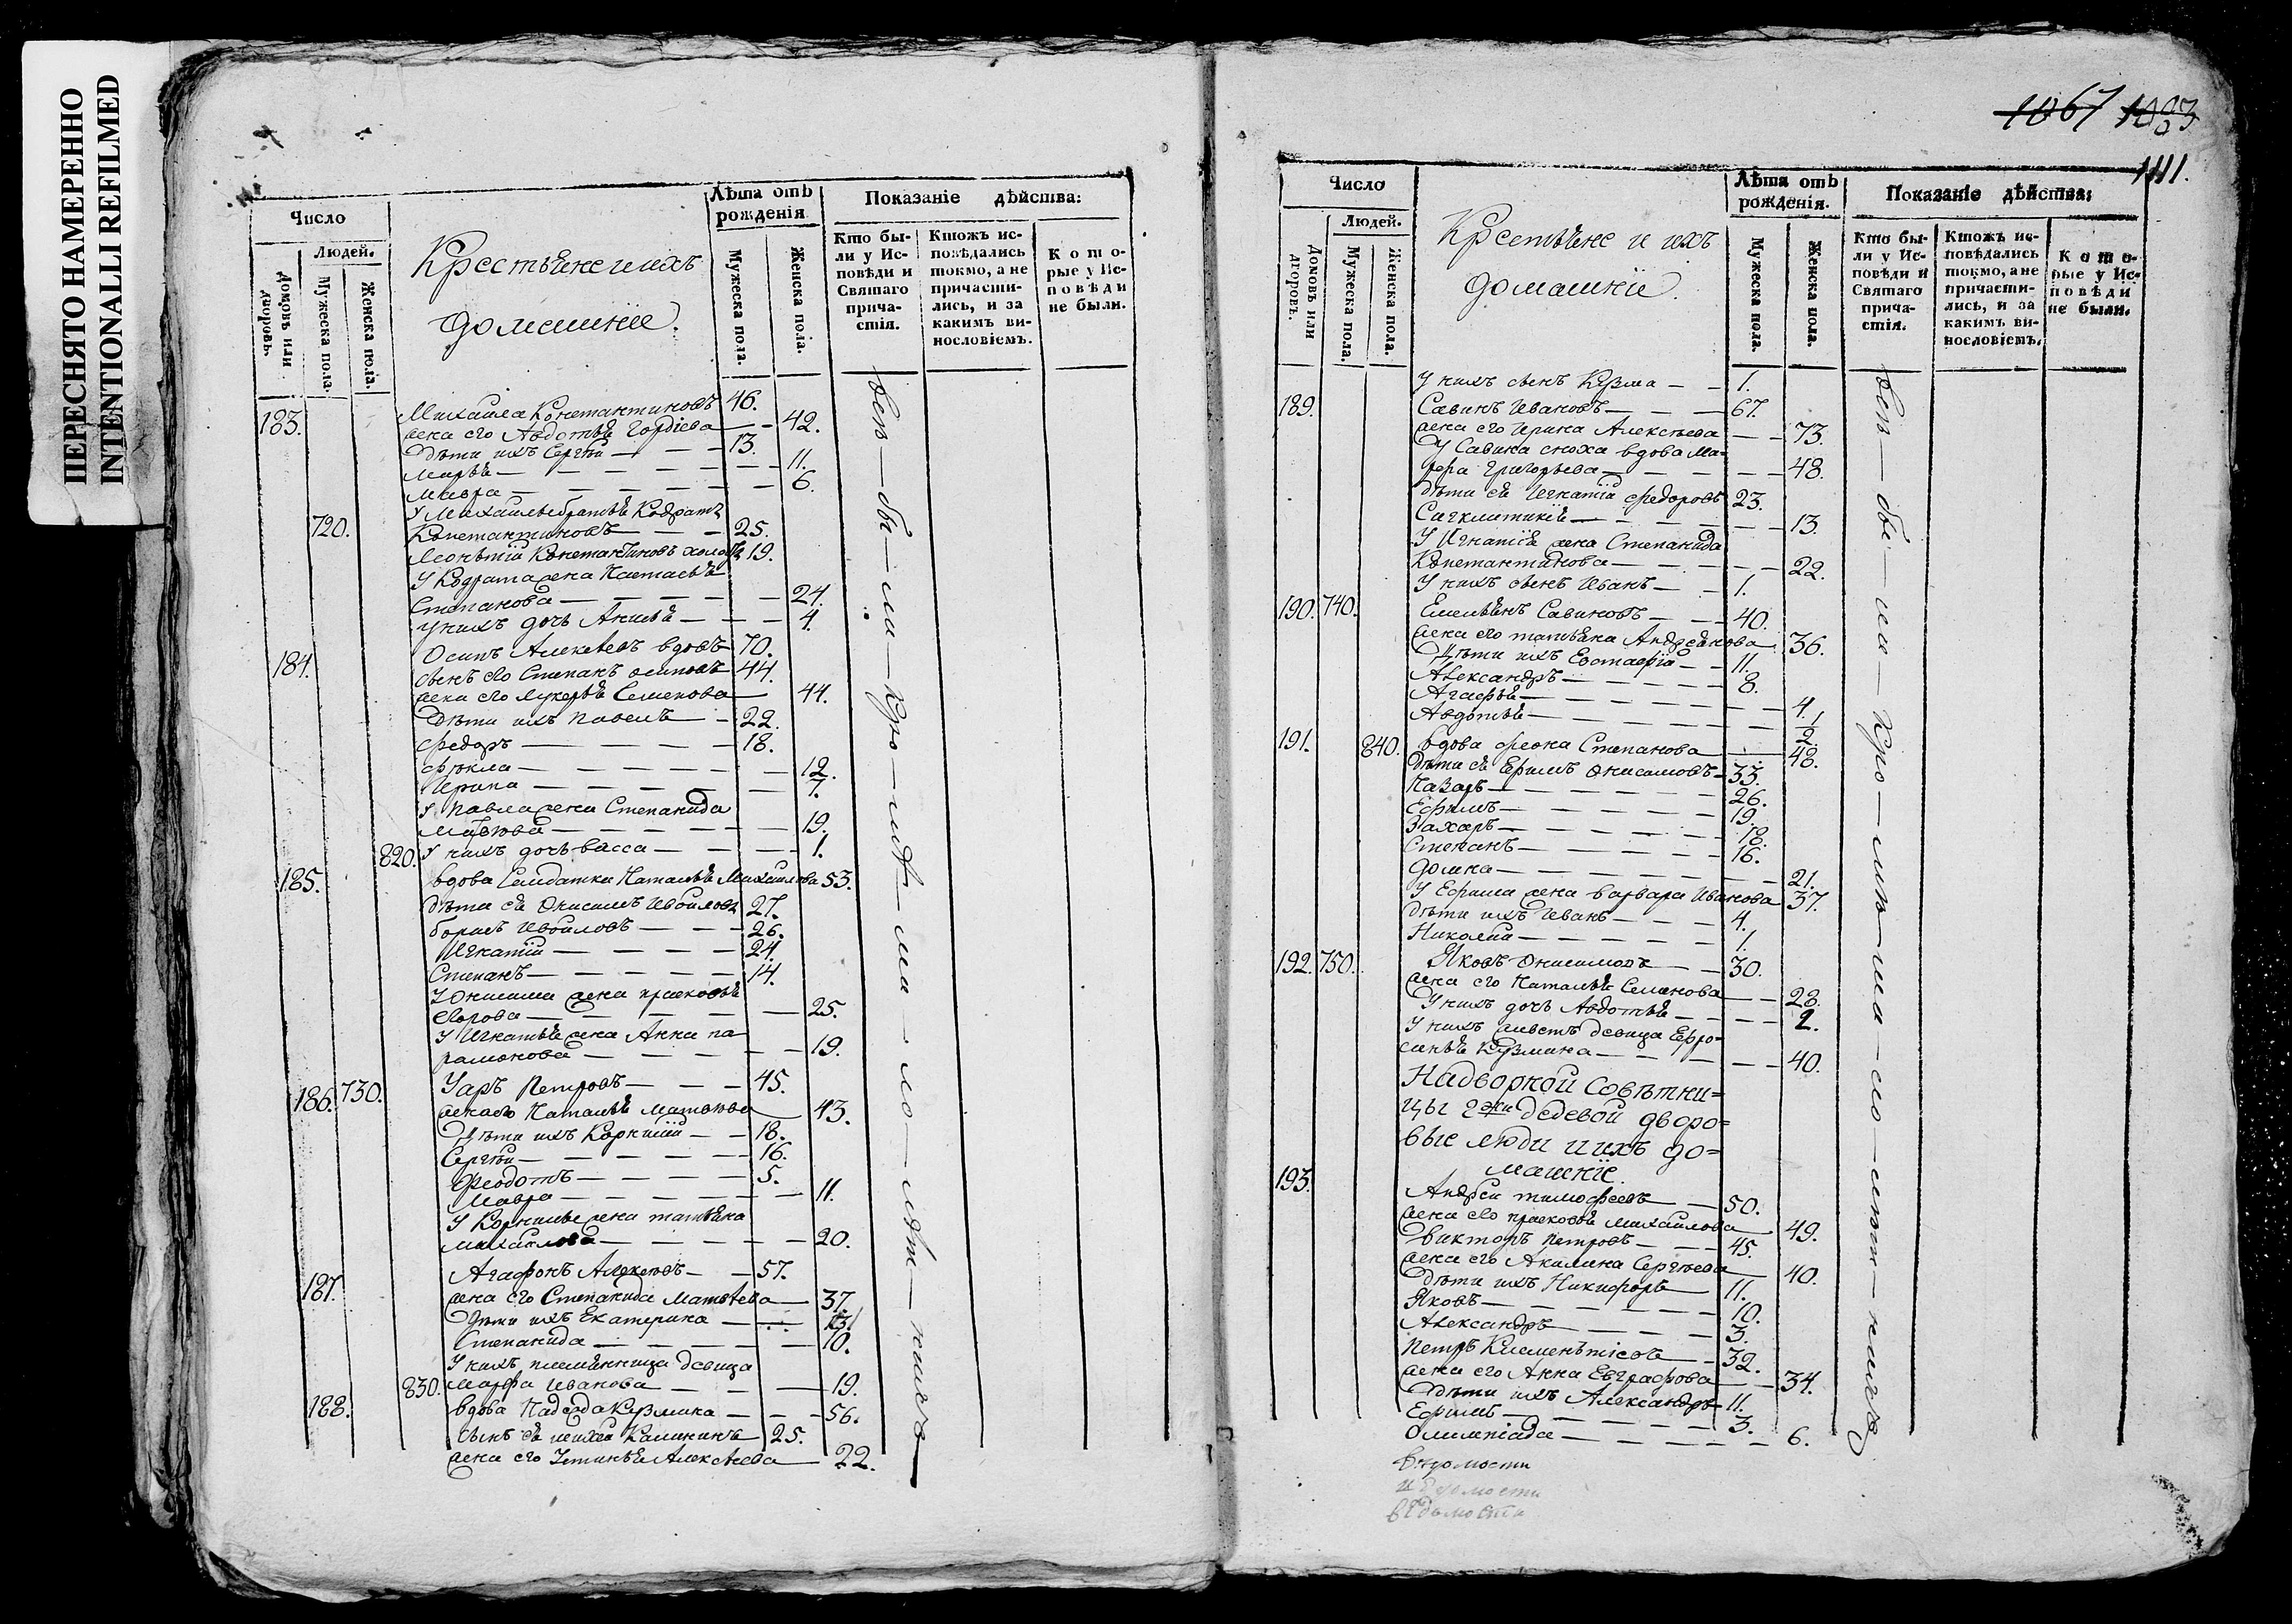 ПЕРЕСНЯТО НАМЕРЕННО
INTENTIONALLI REFILMED
Число
Людей.
Домовъ или дворовъ.
Мужеска пола.
Женска пола.
Крестьяне и ихъ
домашнїе.
Лѣта отъ рожденїя.
Мужеска пола.
Женска пола.
Показанїе дѣйства:
Кто бы-
ли у Ис-
повѣди и
Святаго
прича-
стїя.
Ктожъ ис-
повѣдались
токмо, а не
причасти-
лись, и за
какимъ ви-
нословїемъ.
Кото-
рые у Ис-
повѣди
не были.
183. Михайла Константиновъ 46.
жена его Авдотья Гордѣева — 42.
дѣти ихъ Сергѣй — — 13.
Марья — — — 11.
Мавра — — — 6.
У Михайлы братья Кодратъ
720. Константиновъ — — 25.
Леонътїй Константиновъ холостъ 19.
У Кодрата жена Настасья
Степанова — — — 24.
У нихъ дочь Анисья — — 4.
184. Осипъ Алексѣевъ вдовъ 70.
сынъ его Степанъ Осиповъ 44.
жена его Лукерья Семенова — 44.
дѣти ихъ Павелъ — 22.
Федоръ — — — 18.
Фекла — — — 12.
Ирина — — — 7.
У Павла жена Степанида
Матвѣева — — — 19.
820. У нихъ дочь Васса — — 1.
185. вдова Салдатка Наталья Михайлова 53.
дѣти ея Онисимъ Ивойловъ 27.
Борисъ Ивойловъ — — 26.
Игнатїй — — — 24.
Степанъ — — — 14.
У Онисима жена Прасковья
Егорова — — — 25.
У Игнатья жена Анна Па
рамонова — — — 19.
186. 730. Уаръ Петровъ — — 45.
жена его Наталья Матвѣева — 43.
Дѣти ихъ Корнилїй — 18.
Сергѣй — — — 16.
Феодотъ — — — 5.
Мавра — — — 11.
У Корнилы жена Татьяна
Михайлова — — — 20.
187. Агафонъ Алексѣевъ — 57.
жена его Степанида Матвѣева — 37.
Дѣти ихъ Екатерина — 13.
Степанида — — — 10.
У нихъ племянница девица
830. Марфа Иванова — — 19.
188. вдова Надежда Кузмина — — 56.
сынъ ея Калининъ 25.
жена его Устинья Алексѣева — 22.
Всѣ — бы — ли — Кро — мѣ — ма — ло — лѣт — нихъ
1067 1083
1111.
Число
Людей.
Домовъ или дворовъ.
Мужеска пола.
Женска пола.
Крестьяне и ихъ
домашнїе.
Лѣта отъ рожденїя.
Мужеска пола.
Женска пола.
Показанїе дѣйства:
Кто бы-
ли у Ис-
повѣди и
Святаго
прича-
стїя.
Ктожъ ис-
повѣдались
токмо, а не
причасти-
лись, и за
какимъ ви-
нословїемъ.
Кото-
рые у Ис-
повѣди
не были.
У нихъ сынъ Кузма — — 1.
189. Савинъ Ивановъ — — — 67.
жена его Ирина Алексѣева — — 73.
У Савина сноха вдова Ма-
рфа Григорьева — — — 48.
дѣти ея Игнатїй Федоровъ 23.
— — — 13.
У Игнатїя жена Степанида
Константинова — — — 22.
У нихъ сынъ Иванъ — — 1.
190. 740. Емельянъ Савиновъ — — 40.
жена его Татьяна Андреянова 36.
Дѣти ихъ Евстафїй — — 11.
Александръ — — — 8.
Агафья — — — 4.
Авдотья — — — 1/2.
191. 840. вдова Фекла Степанова — 48.
дѣти ея Ефимъ Онисимовъ — 33.
Назаръ — — — 26.
Ефимъ — — — 19.
Захаръ — — — 18.
Степанъ — — — 16.
Домна — — — 21.
У Ефима жена Варвара Иванова 37.
дѣти ихъ Иванъ — — 4.
Николай — — — 1.
192. 750. Яковъ Онисимовъ — — 30.
жена его Наталья Семенова — — 28.
У нихъ дочь Авдотья — — 2.
У нихъ живетъ девица Ефро-
синья Кузмина — — — 40.
Надворной Совѣтни-
цы Г жи Дедевой дворо-
вые люди и ихъ до-
машнїе.
193. Андрей Тимофеевъ — — 50.
жена его Прасковья Михайлова — 49.
Викторъ Петровъ — — 45.
жена его Акилина Сергѣева — 40.
дѣти ихъ Никифоръ — 11.
Яковъ — — — 10.
Александръ — — — 3.
Петръ Клементїевъ — 32.
жена его Анна Евграфова — 34.
дѣти ихъ Александръ — 11.
Ефимъ — — — 3.
Олимпїада — — — 6.
Всѣ — бы — ли — Кро — мѣ — ма — ло — лѣт — нихъ
вѣдомости
ведомости